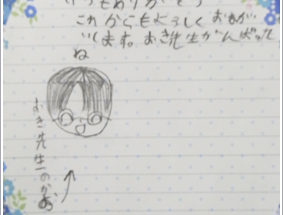 いつもありがとう
これからもよろしくおねがい
します。おき先生がんばって
ね
おき先生のかお